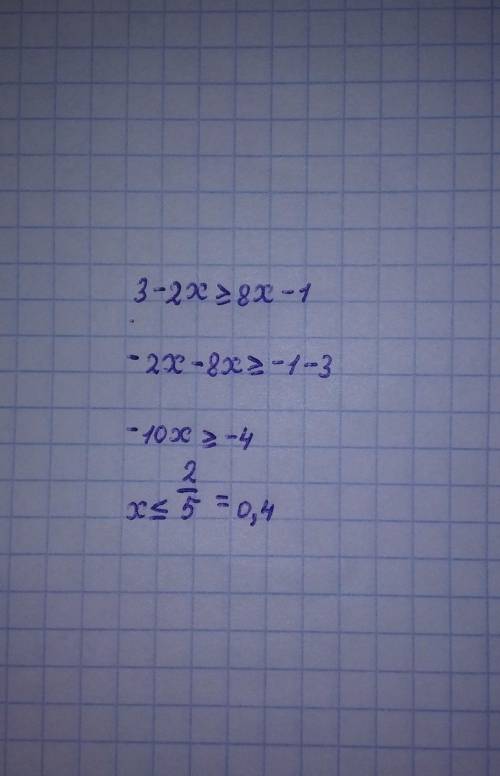 3-2x≥8x-1
-2x-8x≥-1-3
-10x≥-4
x≤2/5=0,4